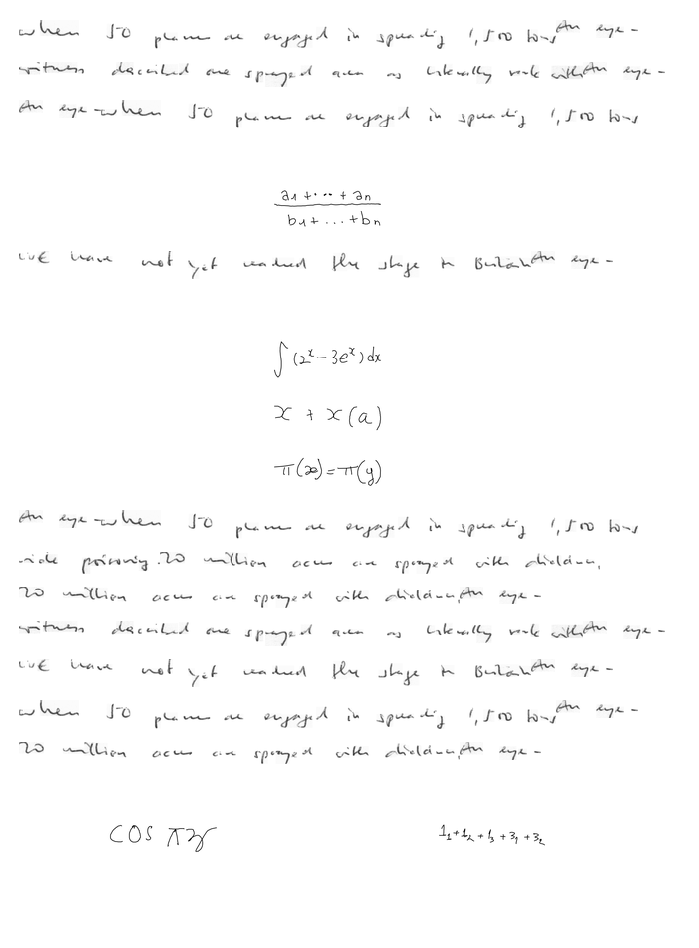 when 50 planes are engaged in spreading 1,500 tons An eye-
witness described one sprayed area as literally reek with An eye-
An eye-when 50 planes are engaged in spreading 1,500 tons
\frac{a_1+\cdots+a_n}{b_1+\ldots+b_n}
we have not yet reached the stage in Britain An eye-
\int (2^x - 3e^x) dx
x + x(a)
\pi(x)=\pi(y)
An eye-when 50 planes are engaged in spreading 1,500 tons
poisoning. 20 million acres are sprayed with dieldrin,
20 million acres are sprayed with dieldrin, An eye-
witness described one sprayed area as literally reek with An eye-
we have not yet reached the stage in Britain An eye-
when 50 planes are engaged in spreading 1,500 tons An eye-
20 million acres are sprayed with dieldrin, An eye-
cos \pi z 1_1+1_2+1_3+3_1+3_2